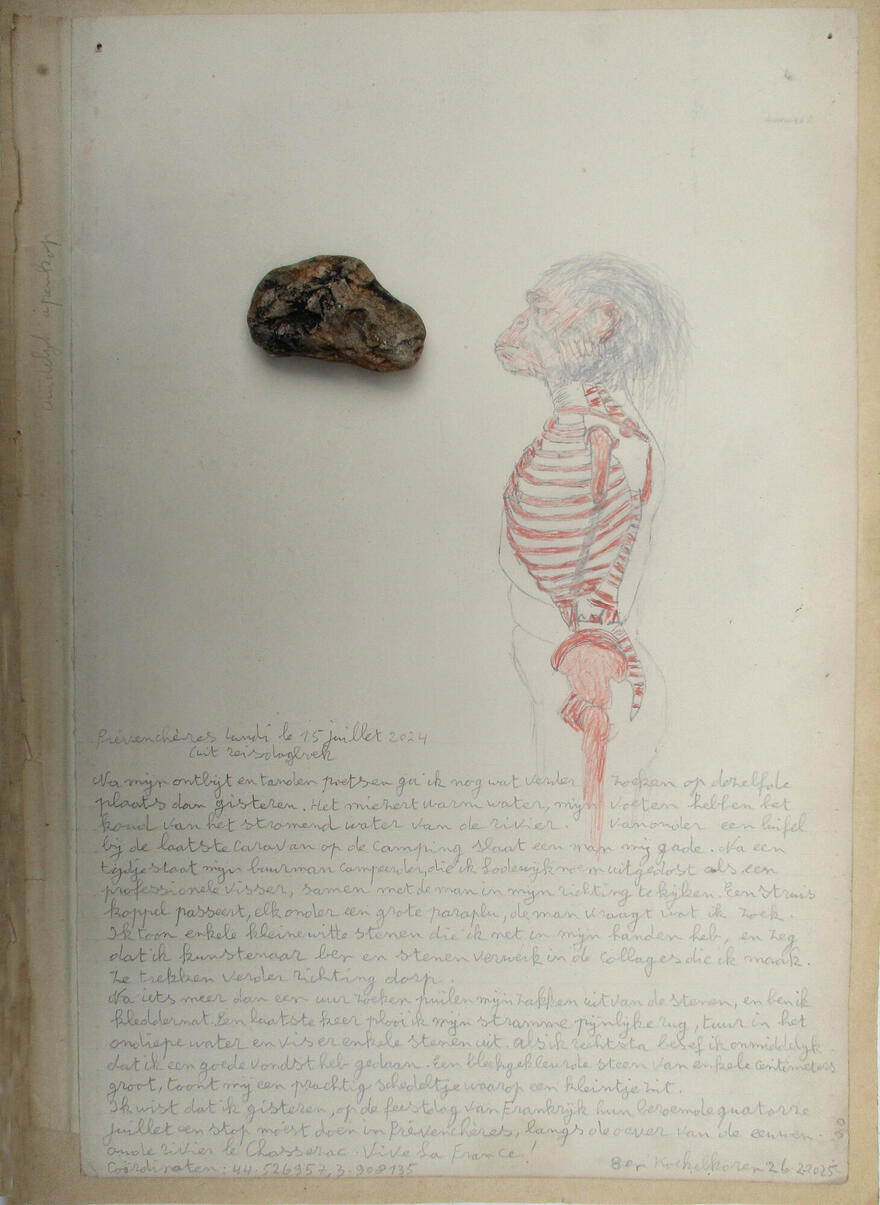 Prévenchères Lundi le 15 juillet 2024
(uit reisdagboek
Na mijn ontbijt en tanden poetsen ga ik nog wat verder zoeken op dezelfde
plaats dan gisteren. Het miezert warm water, mijn voeten hebben het
koud van het stromend water van de rivier. vanonder een luifel
bij de laatste caravan op de camping slaat een man mij gade. Na een
tijdje staat mijn buurman campeerder, die ik Lodewijk noem uitgedost als een
professionele visser, samen met de man in mijn richting te kijken. Een struis
koppel passeert, elk onder een grote paraplu, de man vraagt wat ik zoek.
Ik toon enkele kleine witte stenen die ik net in mijn handen heb, en zeg
dat ik kunstenaar ben en stenen verwerk in de collages die ik maak.
Ze trekken verder richting dorp.
Na iets meer dan een uur zoeken puilen mijn zakken uit van de stenen, en ben ik
kleddernat. Een laatste keer plooi ik mijn stramme pijnlijke rug, tuur in het
ondiepe water en vis er enkele stenen uit. als ik rechtsta besef ik onmiddelijk
dat ik een goede vondst heb gedaan. Een bleekgekleurde steen van enkele centimeters
groot, toont mij een prachtig schedeltje waarop een kleintje zit.
Ik wist dat ik gisteren, op de feestdag van Frankrijk hun beroemde quatorze
juillet een stop moest doen in Prévenchères, langs de oever van de eeuwen-
oude rivier le Chassezac. Vive La France!
Coördinaten: 44.526957, 3.908135
Ben Kockelkoren 26.2.2025